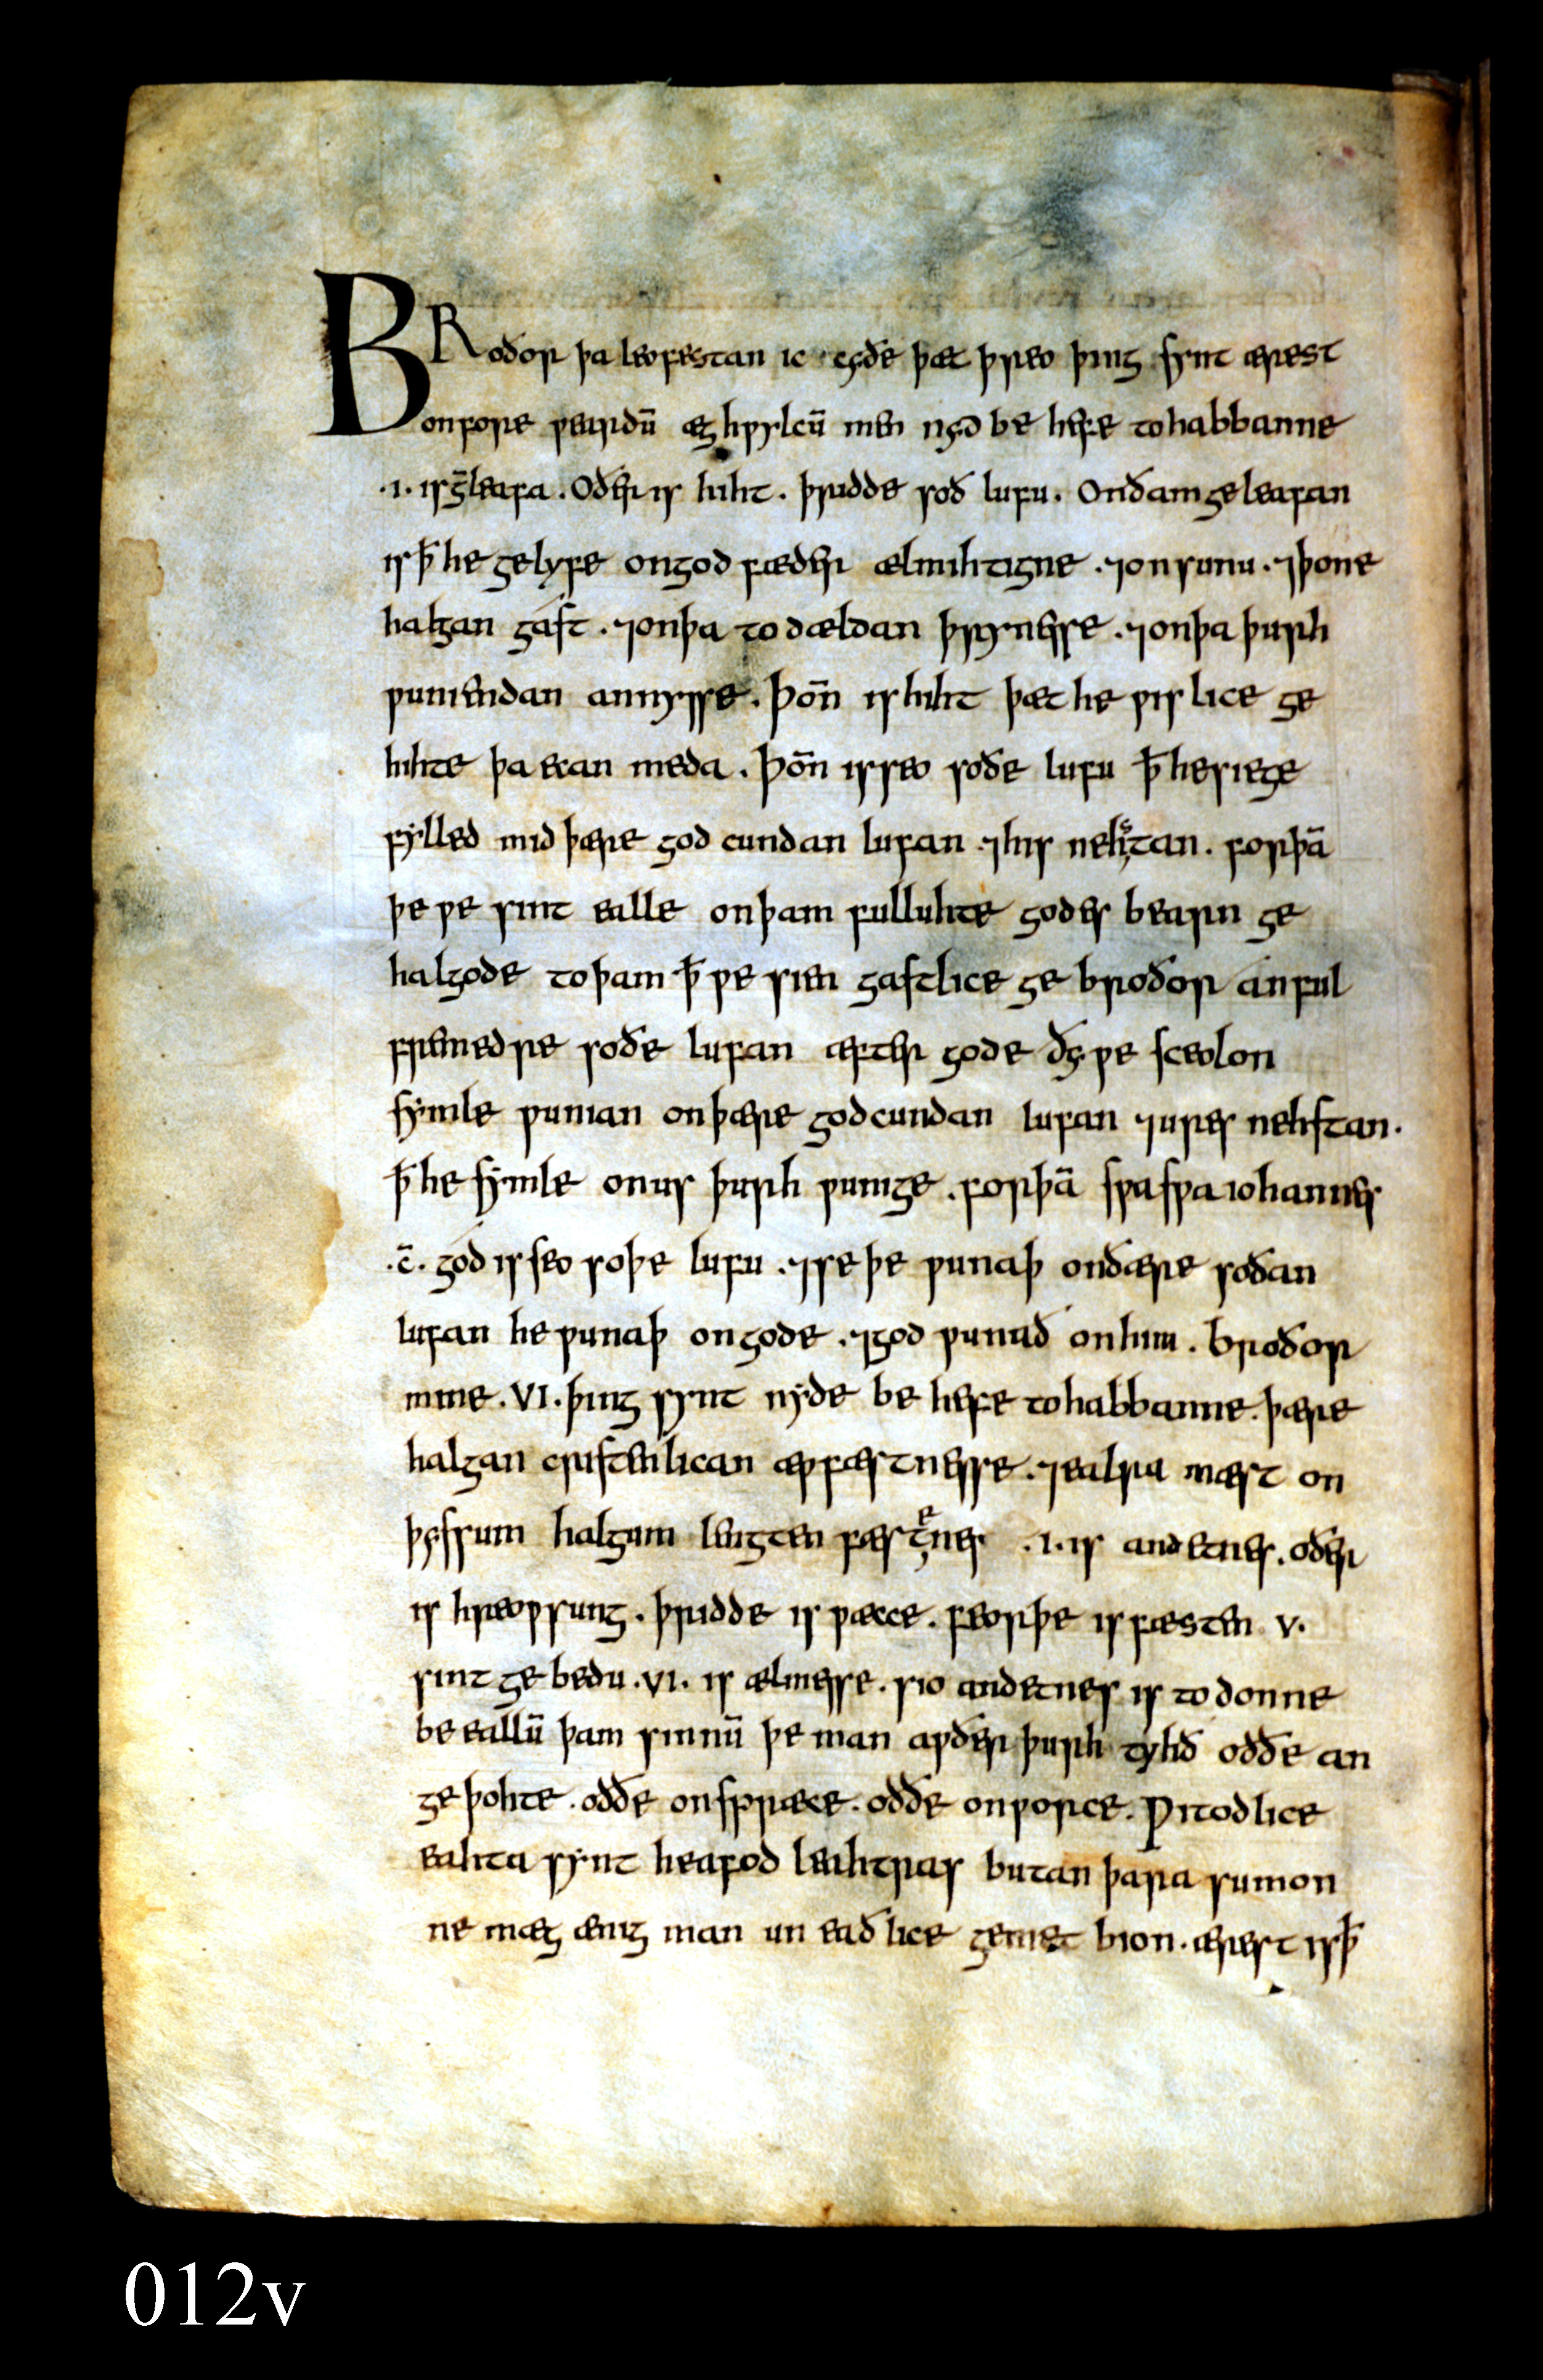 BRoðor þa leofestan ic cyðe þæt þreo þing synt ærest
onforeweardū æghwylcū men nyd be hefe tohabbanne
.i. is gleafa. Oðer is hiht. þridde soð lufu. Onðam geleafan
is ꝥ he gelyfe ongod fæder ælmihtigne. ⁊on sunu. ⁊þone
halgan gast. ⁊onþa todældan þrynesse. ⁊onþa þurh
wuniendan annysse. Þon̄ is hiht þæt he wislice ge
hihte þa ecan meda. Þon̄ is seo soðe lufu ꝥ he sie ge
fylled mid þære god cundan lufan ⁊his nehstan. forþā
þe we sint ealle onþam fulluhte godes bearn ge
halgode toþam ꝥ we sien gastlice ge broðor an ful
fremedre soðe lufan æfter gode ðy we sceolon
symle wunian onþære godcundan lufan ⁊ures nehstan.
ꝥ he symle onus þurh wunige. forþā swaswa iohannes
.c̄. god is seo soþe lufu. ⁊se þe wunaþ onðære soðan
lufan he wunaþ ongode. ⁊god wunað onhim. broðor
mine. VI. þing synt nyde be hefe tohabbanne. þære
halgan cristenlican æwfæstnesse. ⁊ealra mæst on
þyssum halgum lengten fæstenes .i. is andetnes. oðer
is hreowsung. þridde is wæcce. feorþe is fæsten v.
sint ge bedu. vi. is ælmesse. sio andetnes is todonne
be eallū þam sinnū þe man awðer þurh tyhð oððe an
ge þohte. oððe onspræce. oððe onworce. Witodlice
eahta synt heafod leahtras butan þara sumon
ne mæg ænig man un eaðlice gemet bion. ærest is ꝥ
012v